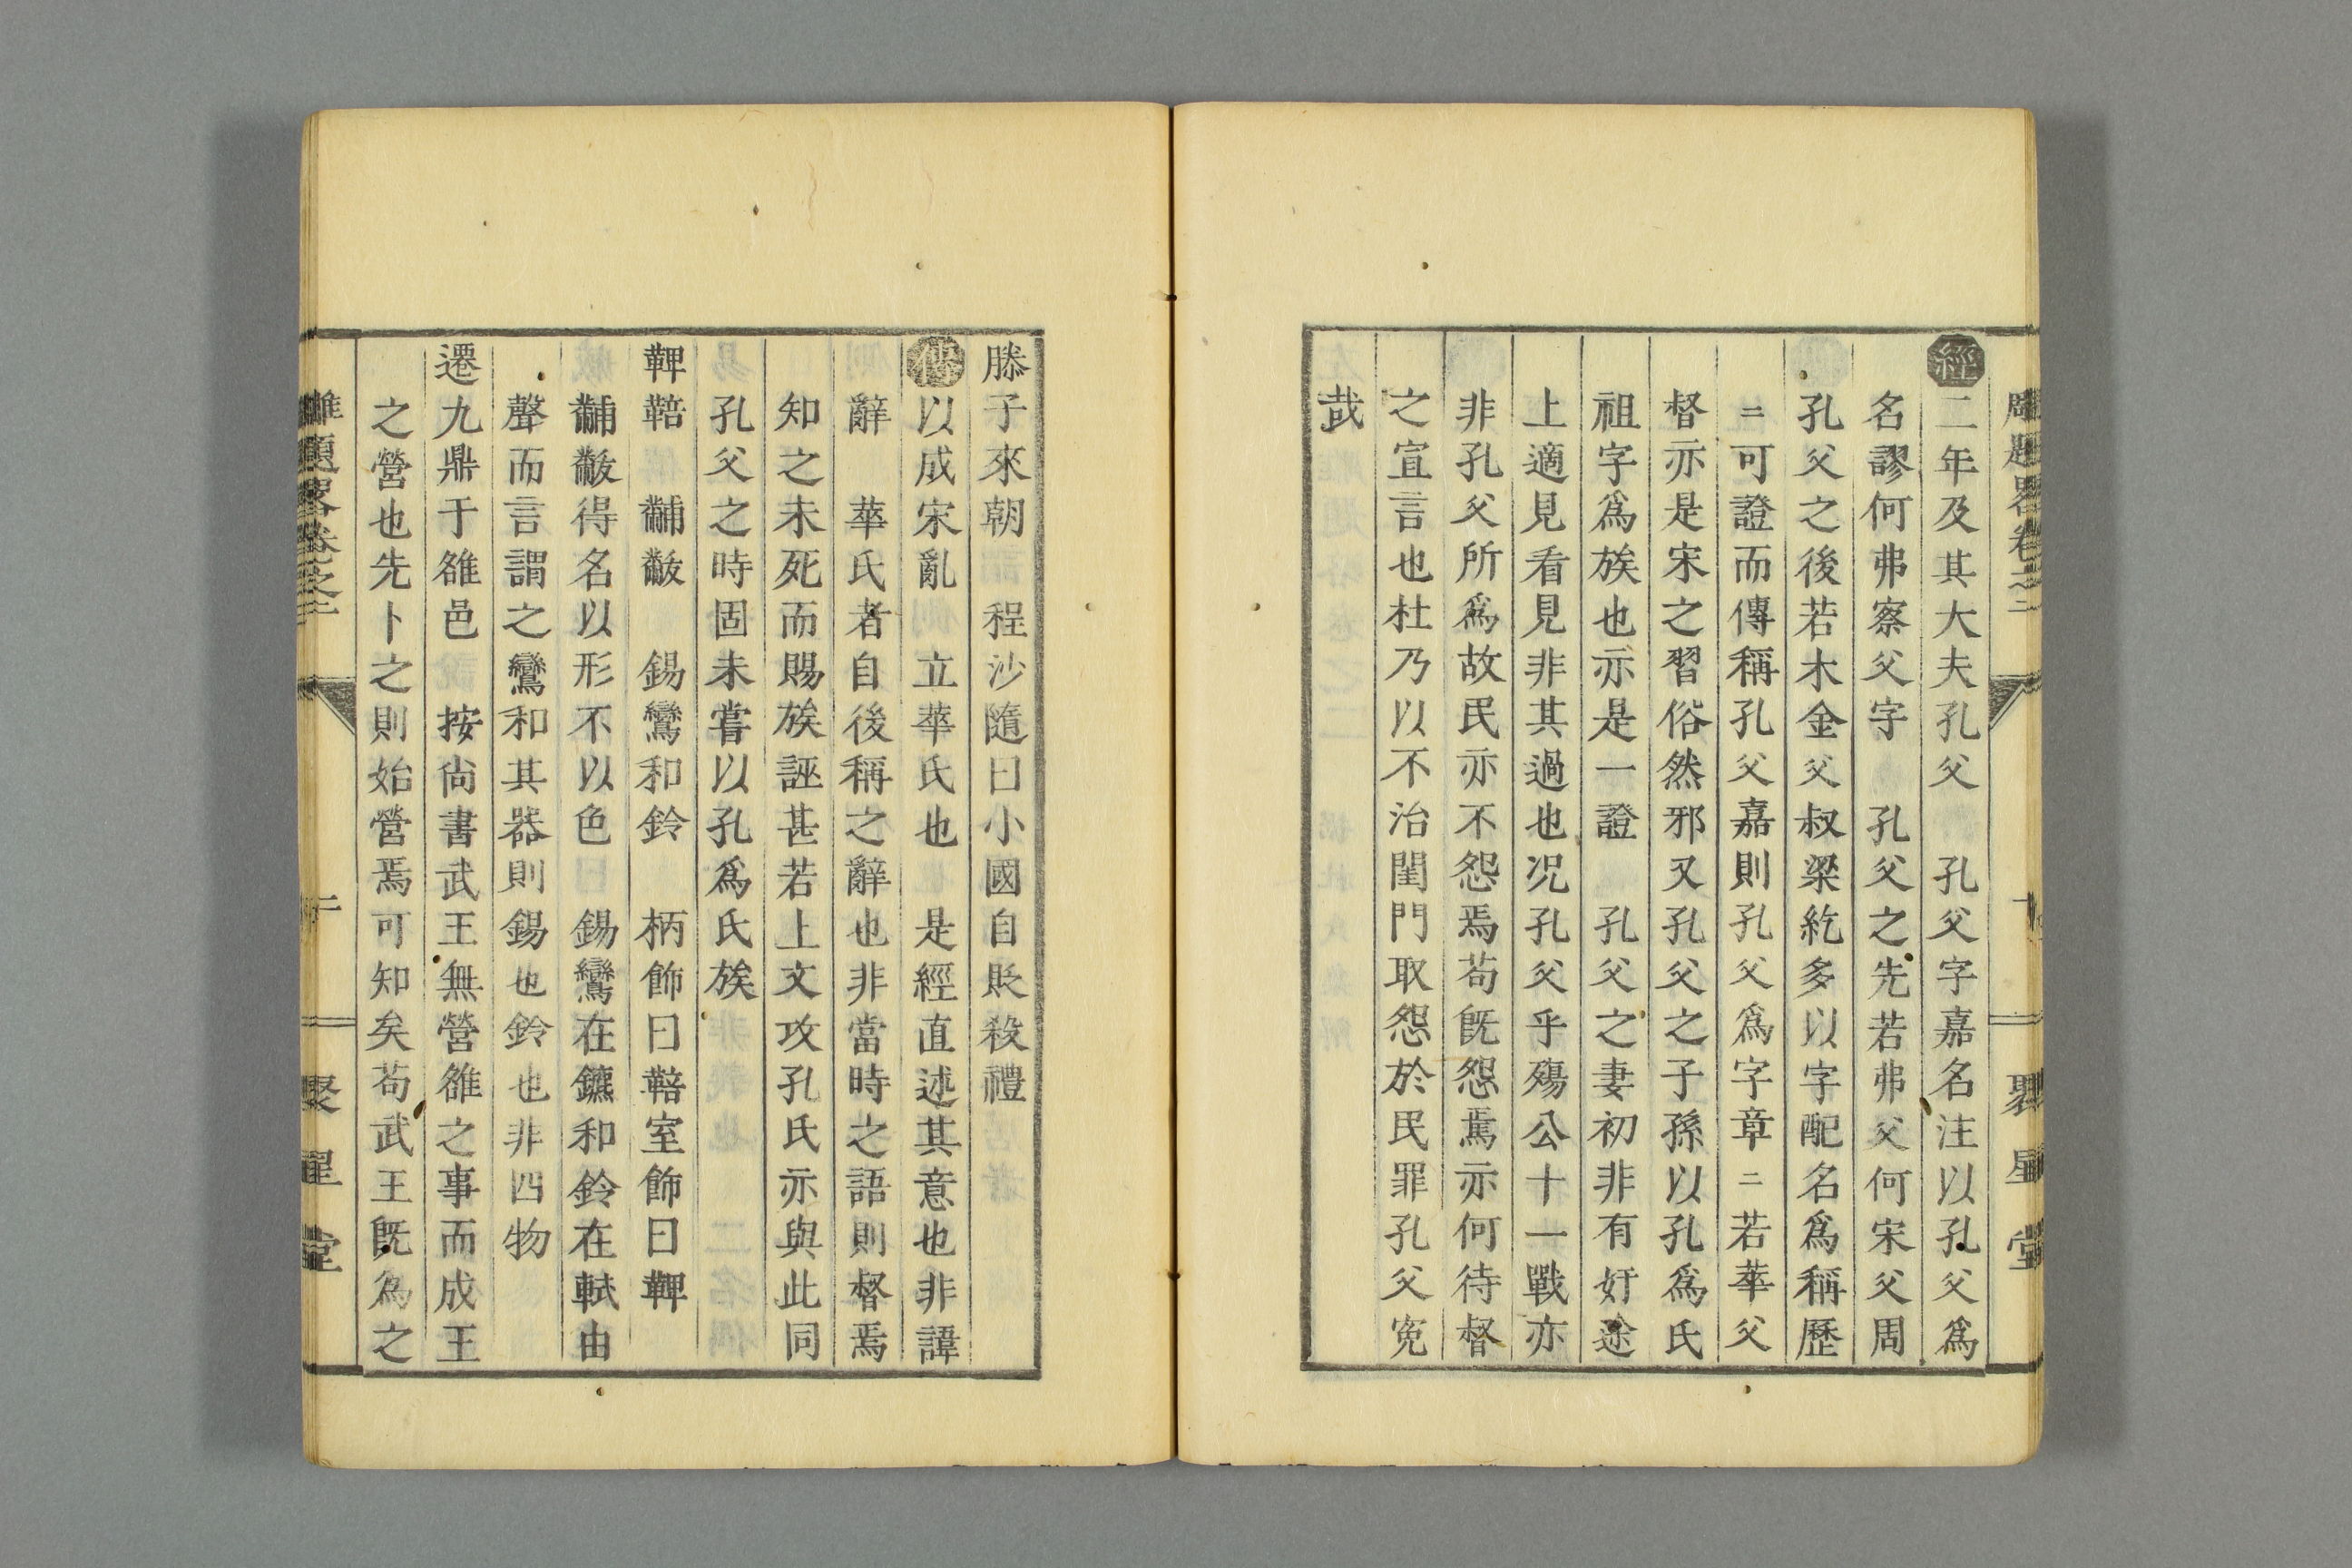 經二年及其大夫孔父　孔父字嘉名注以孔父爲
名謬何弗察父字　孔父之先若弗父何宋父周
孔父之後若木金父叔梁紇多以字配名爲稱歷
二可證而傳稱孔父嘉則孔父爲字章二若華父
督亦是宋之習俗然邪又孔父之子孫以孔爲氏
祖字爲族也亦是一證　孔父之妻初非有奸途
上適見看見非其過也况孔父乎殤公十一戰亦
非孔父所爲故民亦不怨焉苟旣怨焉亦何待督
之宣言也杜乃以不治閨門取怨於民罪孔父寃
哉
滕子來朝　程沙隨曰小國自貶殺禮
傳以成宋亂　立華氏也　是經直述其意也非諱
辭　華氏者自後稱之辭也非當時之語則督焉
知之未死而賜族誣甚若上文攻孔氏亦與此同
孔父之時固未嘗以孔爲氏族
鞞鞛　黼黻　鍚鸞和鈴　柄飾曰鞛室飾曰鞞
黼黻得名以形不以色　鍚鸞在鑣和鈴在軾由
聲而言謂之鸞和其器則鍚也鈴也非四物
遷九鼎于雒邑　按尚書武王無營雒之事而成王
之營也先卜之則始營焉可知矣苟武王旣爲之
雕題畧卷之二
聚星堂